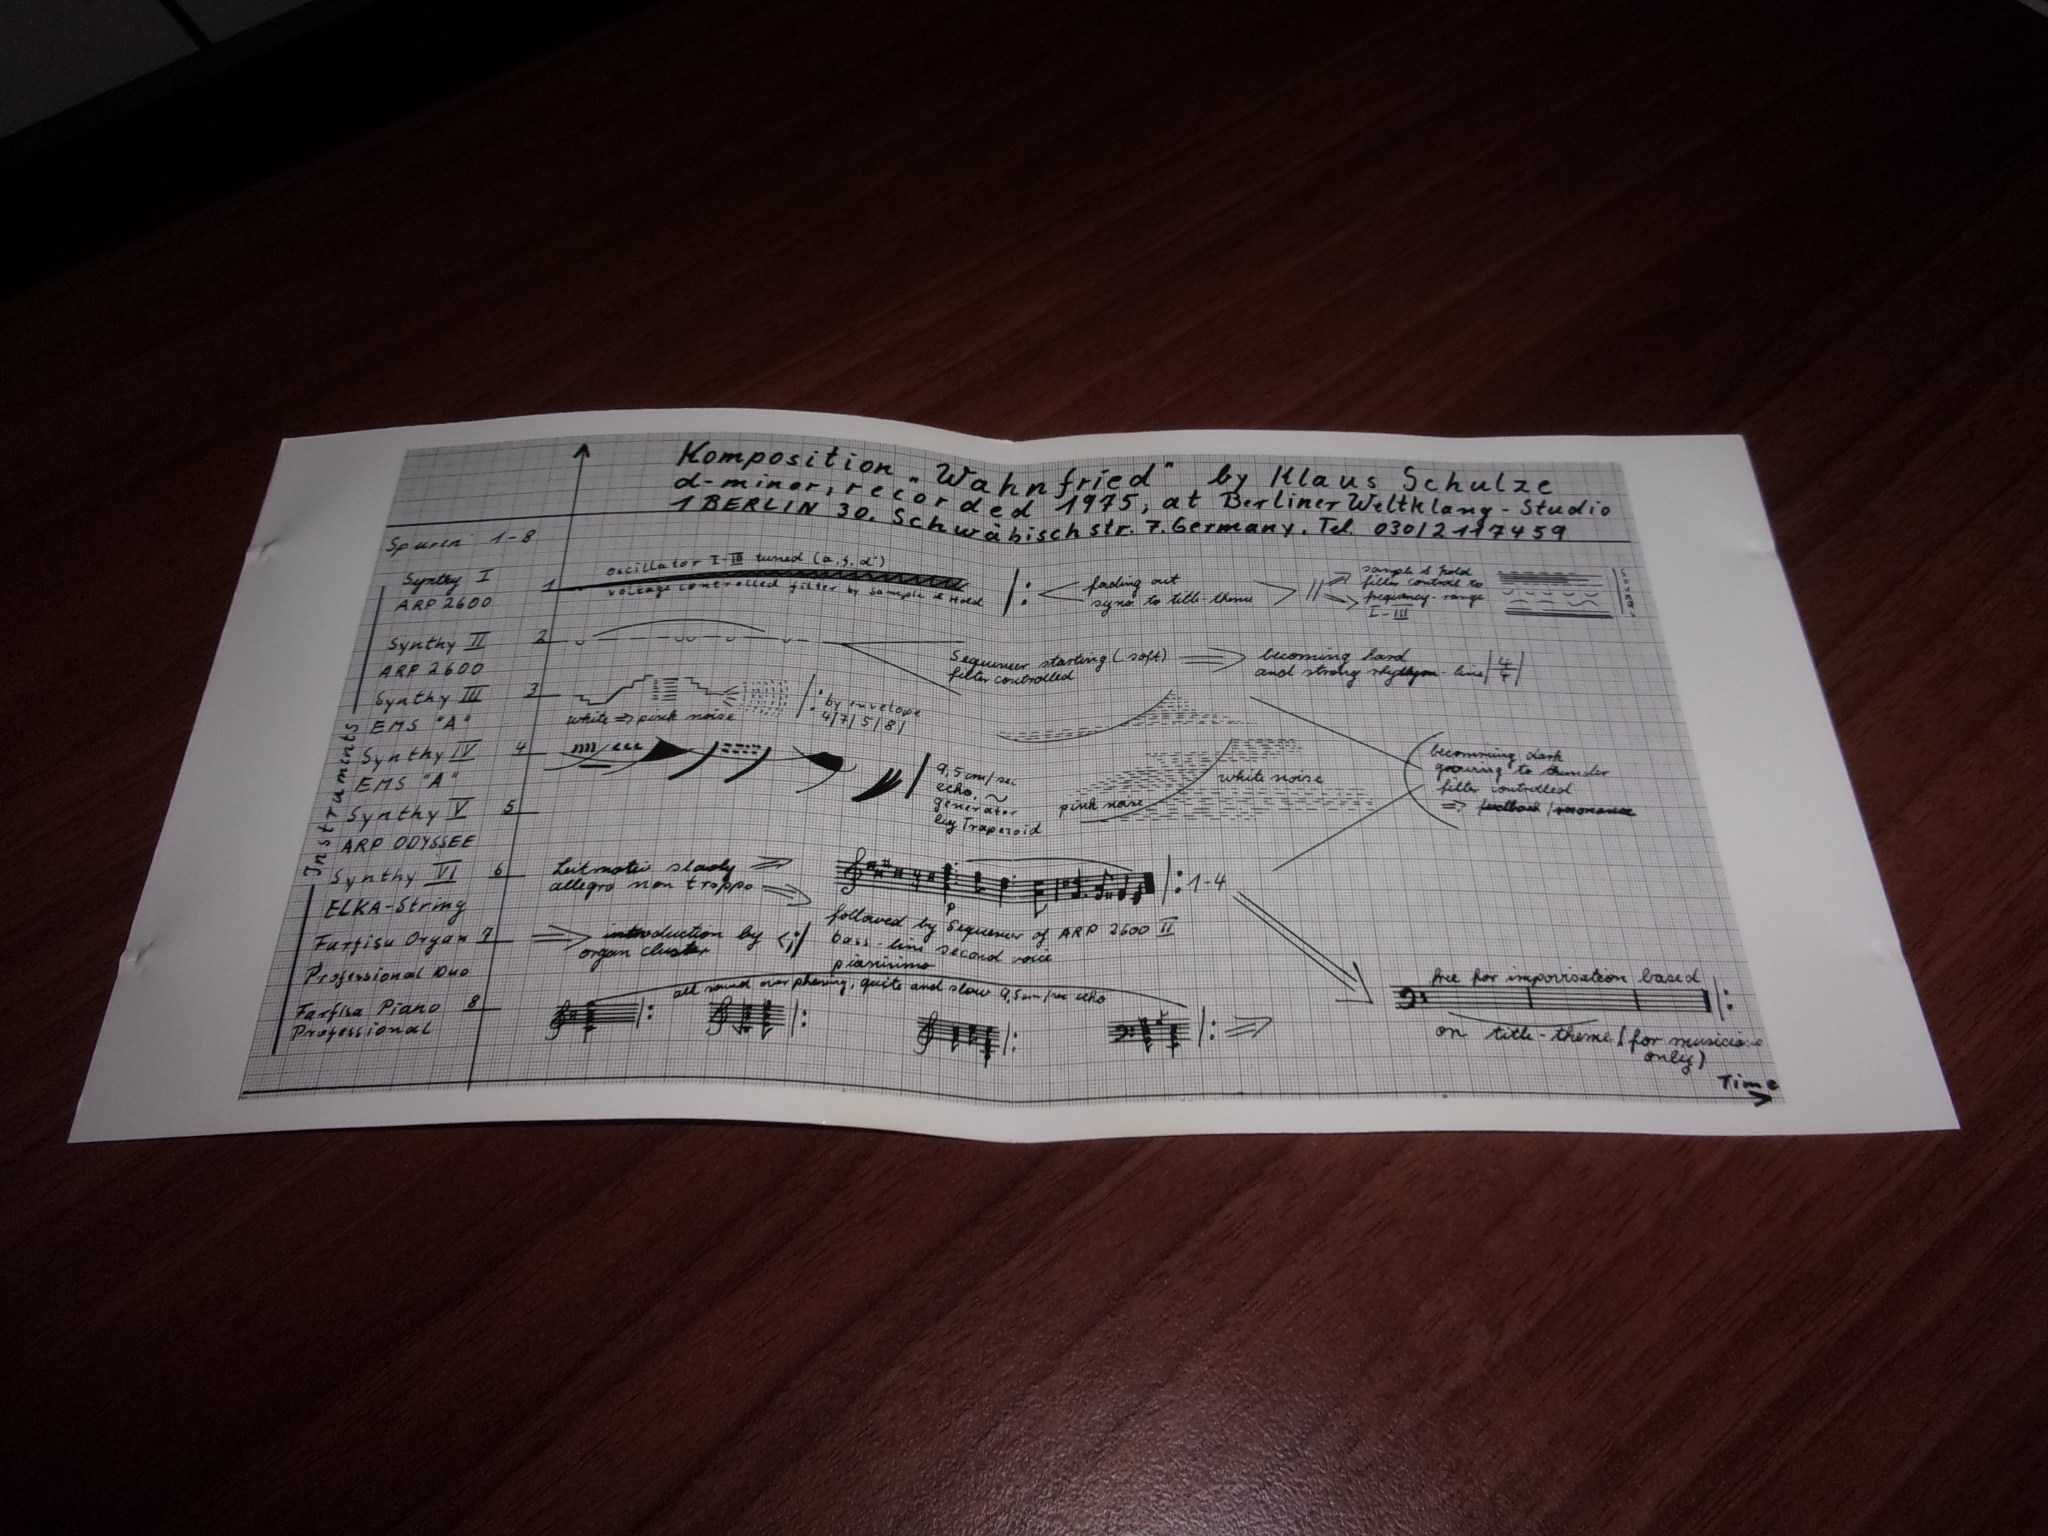 Komposition „Wahnfried" by Klaus Schulze
d-minor, recorded 1975, at Berliner Weltklang-Studio
1 BERLIN 30. Schwäbischstr. 7. Germany. Tel. 030/2117459
Spuren 1-8
Instruments
Synthy I
ARP 2600
1
oscillator I-III tuned (a, g, d')
voltage controlled filter by Sample & Hold
fading out
sync. to title-theme
sample & hold
filter control to
frequency-range
I-III
Synthy II
ARP 2600
2
Sequencer starting (soft)
filter controlled
becoming hard
and strong rhythm-line
Synthy III
EMS "A"
3
white => pink noise
by envelope
4/7/5/8/
Synthy IV
EMS "A"
4
9,5 cm/sec
echo, ~
generator
by Trapezoid
pink noise
white noise
becomming dark
growing to thunder
filter controlled
=> feedback/resonance
Synthy V
ARP ODYSSEE
5
Synthy VI
ELKA-String
6
Leitmotiv slowly
allegro non troppo
p
1-4
followed by Sequencer of ARP 2600 II
bass-line second voice
pianisimo
Farfisa Organ
Professional Duo
7
introduction by
organ cluster
Farfisa Piano
Professional
8
all sound over phasing, quite and slow 9,5 cm/sec echo
free for improvisation based
on title-theme (for musicians
only)
Time